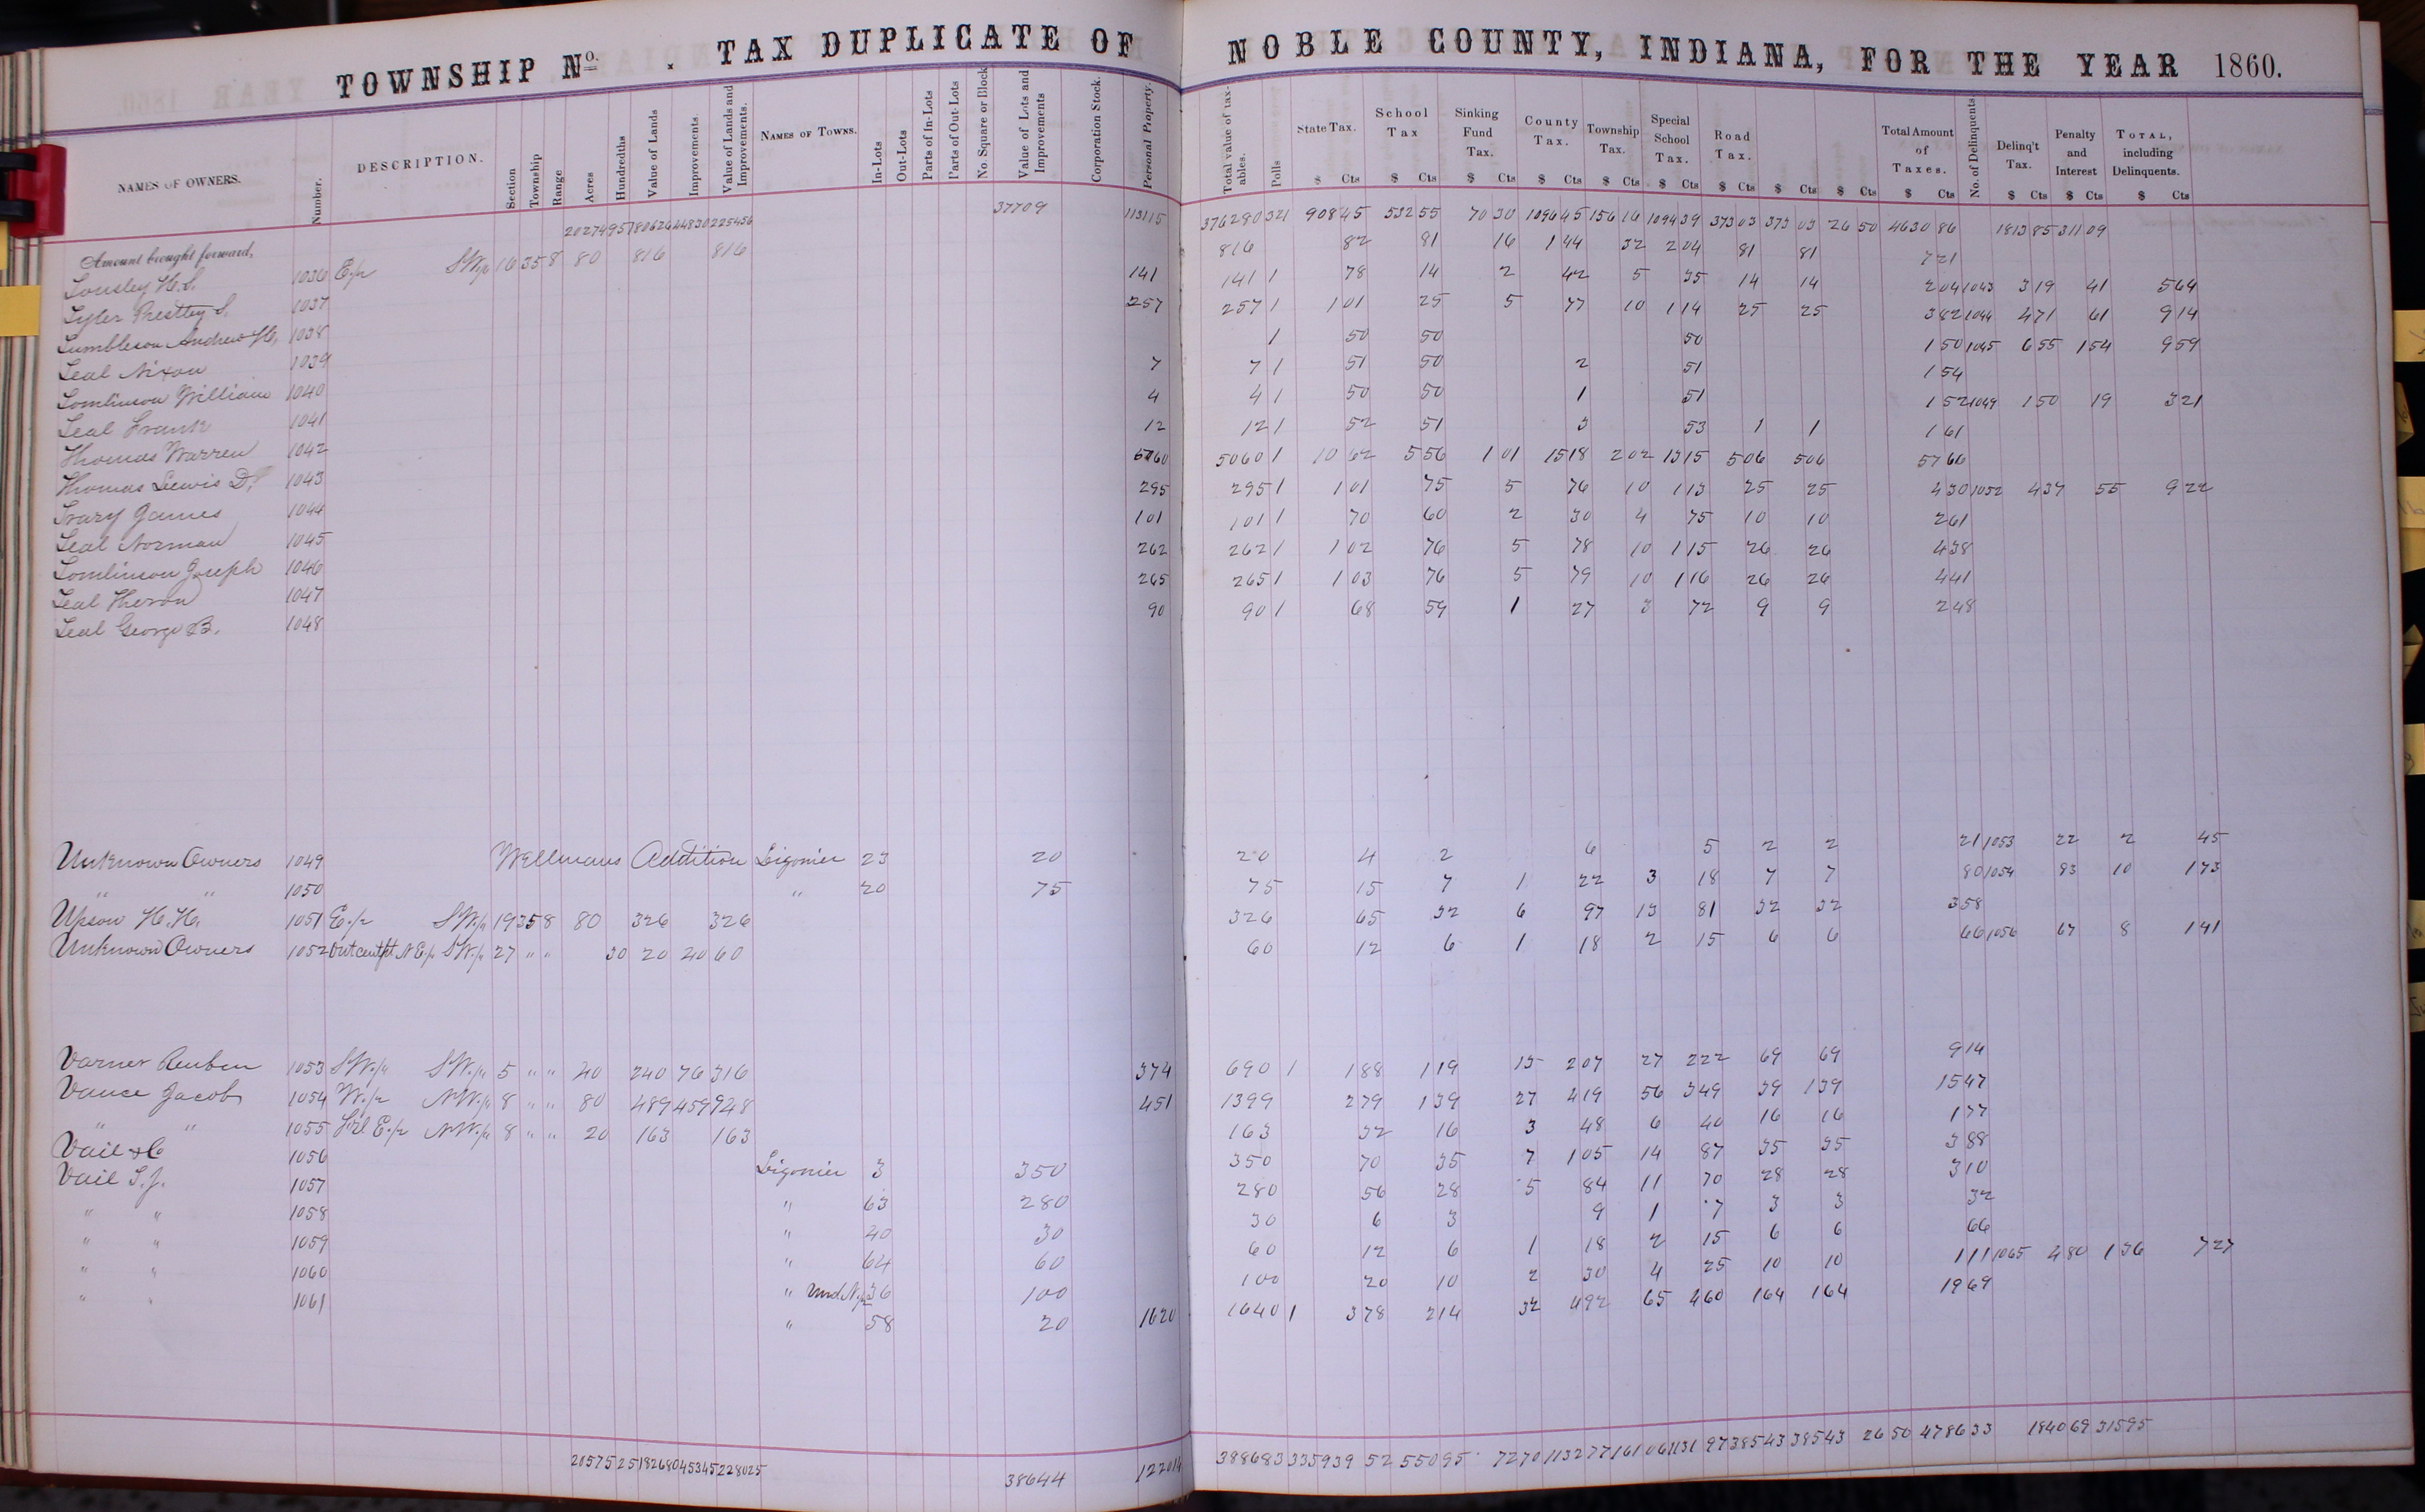 TOWNSHIP No. . TAX DUPLICATE OF NOBLE COUNTY, INDIANA, FOR THE YEAR 1860.
NAMES OF OWNERS. Number. DESCRIPTION. Section Township Range Acres Hundredths Value of Lands Improvements. Value of Lands and Improvements. NAMES OF TOWNS. In-Lots Out-Lots Parts of In-Lots Parts of Out-Lots No Square or Block Value of Lots and Improvements Corporation Stock. Personal Property. Total value of taxables. Polls State Tax. School Tax Sinking Fund Tax. County Tax. Township Tax. Special School Tax. Road Tax. Total Amount of Taxes. No. of Delinquents Delinq't Tax. Penalty and Interest TOTAL, including Delinquents.
$ Cts $ Cts $ Cts $ Cts $ Cts $ Cts $ Cts $ Cts $ Cts $ Cts $ Cts $ Cts $ Cts
Amount brought forward, 20274 95 180626 44830 225456 37709 113115 376280 321 908 45 532 55 70 30 1096 45 156 16 1094 39 373 03 373 03 26 50 4630 86 1813 85 311 09
1036 E/2 SW/4 16 35 8 80 816 816 816 82 81 16 1 44 32 2 04 81 81 7 21
Tyler 1037 141 141 1 78 14 2 42 5 35 14 14 2 04 1043 3 19 41 5 64
Tumbleson Andrew H. 1038 257 257 1 1 01 25 5 77 10 1 14 25 25 3 82 1044 4 71 61 9 14
Teal Nixon 1039 1 50 50 50 1 50 1045 6 55 1 54 9 59
Tomlinson William 1040 7 7 1 51 50 2 51 1 54
Teal Frank 1041 4 4 1 50 50 1 51 1 52 1049 1 50 19 3 21
Thomas Warren 1042 12 12 1 52 51 3 53 1 1 1 61
Thomas Lewis D. 1043 5060 5060 1 10 62 5 56 1 01 15 18 2 02 13 15 5 06 5 06 57 66
James 1044 295 295 1 1 01 75 5 76 10 1 13 25 25 4 30 1052 4 37 55 9 22
Teal Norman 1045 101 101 1 70 60 2 30 4 75 10 10 2 61
Tomlinson Joseph 1046 262 262 1 1 02 76 5 78 10 1 15 26 26 4 38
Teal Theron 1047 265 265 1 1 03 76 5 79 10 1 16 26 26 4 41
Teal George B. 1048 90 90 1 68 59 1 27 3 72 9 9 2 48
Unknown Owners 1049 Wellmans Addition Ligonier 23 20 20 4 2 6 5 2 2 21 1053 22 2 45
" " 1050 " 20 75 75 15 7 1 22 3 18 7 7 80 1054 83 10 1 73
Upson H. H. 1051 E/2 SW/4 19 35 8 80 326 326 326 65 32 6 97 13 81 32 32 3 58
Unknown Owners 1052 NE/4 SW/4 27 " " 30 20 40 60 60 12 6 1 18 2 15 6 6 66 1056 67 8 1 41
Varner Reuben 1053 SW/4 SW/4 5 " " 40 240 76 316 374 690 1 1 88 1 19 13 2 07 27 2 22 69 69 9 14
Vance Jacob 1054 W/2 NW/4 8 " " 80 489 459 948 451 1399 2 79 1 39 27 4 19 56 3 49 39 1 39 15 47
" " 1055 E/2 NW/4 8 " " 20 163 163 163 32 16 3 48 6 40 16 16 1 77
Vail & Co 1056 Ligonier 3 350 350 70 35 7 1 05 14 87 35 35 3 88
Vail S. J. 1057 " 63 280 280 56 28 5 84 11 70 28 28 3 10
" " 1058 " 40 30 30 6 3 9 1 7 3 3 32
" " 1059 " 64 60 60 12 6 1 18 2 15 6 6 66
" " 1060 " Und. N/2 36 100 100 20 10 2 30 4 25 10 10 1 11 1065 4 80 1 36 7 27
" " 1061 " 58 20 1620 1640 1 3 78 2 14 32 4 92 65 4 60 1 64 1 64 19 69
20575 25 182680 45345 228025 38644 122014 388683 335 939 52 550 95 72 70 1132 77 161 06 1131 97 385 43 385 43 26 50 4786 33 1840 69 315 95